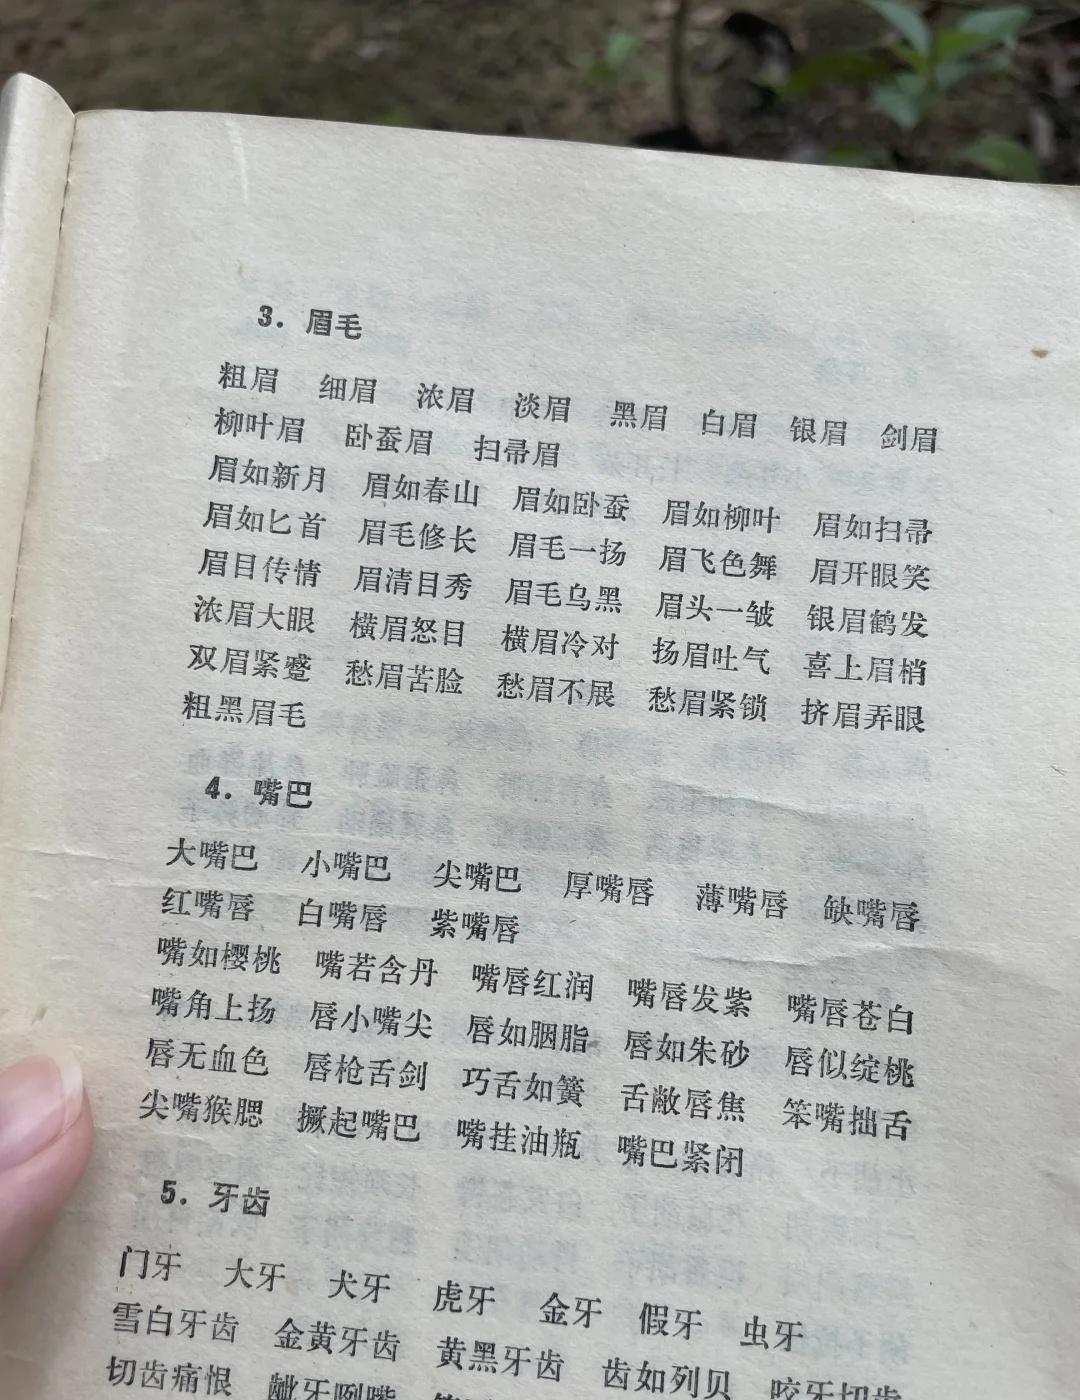 3. 眉毛
粗眉 细眉 浓眉 淡眉 黑眉 白眉 银眉 剑眉
柳叶眉 卧蚕眉 扫帚眉
眉如新月 眉如春山 眉如卧蚕 眉如柳叶 眉如扫帚
眉如匕首 眉毛修长 眉毛一扬 眉飞色舞 眉开眼笑
眉目传情 眉清目秀 眉毛乌黑 眉头一皱 银眉鹤发
浓眉大眼 横眉怒目 横眉冷对 扬眉吐气 喜上眉梢
双眉紧蹙 愁眉苦脸 愁眉不展 愁眉紧锁 挤眉弄眼
粗黑眉毛
4. 嘴巴
大嘴巴 小嘴巴 尖嘴巴 厚嘴唇 薄嘴唇 缺嘴唇
红嘴唇 白嘴唇 紫嘴唇
嘴如樱桃 嘴若含丹 嘴唇红润 嘴唇发紫 嘴唇苍白
嘴角上扬 唇小嘴尖 唇如胭脂 唇如朱砂 唇似绽桃
唇无血色 唇枪舌剑 巧舌如簧 舌敝唇焦 笨嘴拙舌
尖嘴猴腮 撅起嘴巴 嘴挂油瓶 嘴巴紧闭
5. 牙齿
门牙 大牙 犬牙 虎牙 金牙 假牙 虫牙
雪白牙齿 金黄牙齿 黄黑牙齿 齿如列贝 咬牙切齿
切齿痛恨 龇牙咧嘴